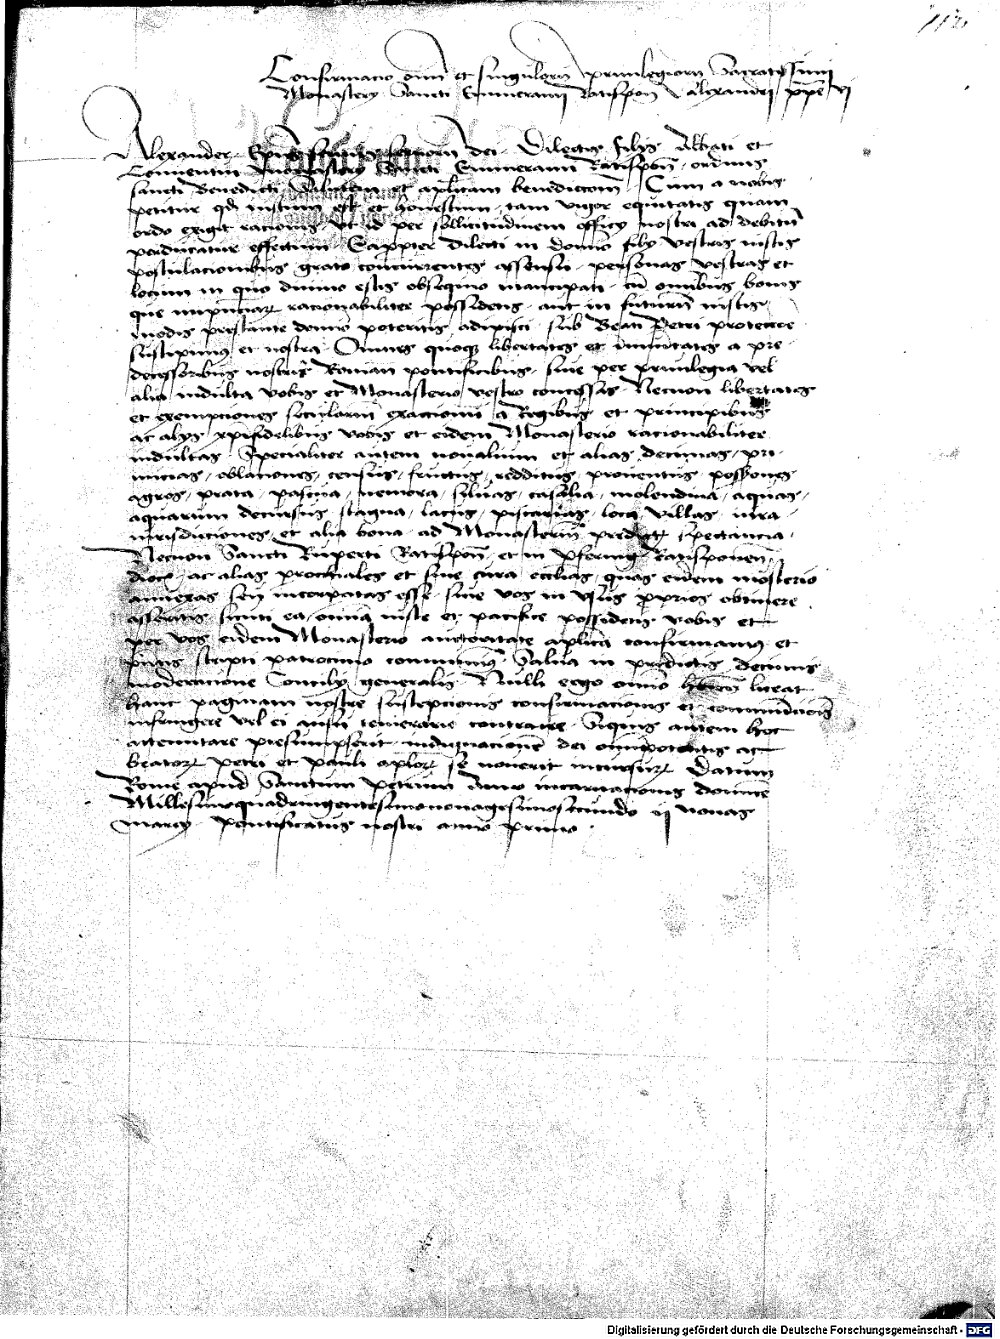 Confirmacio om̄ et singulorū privilegiorū Sacratissimi
Monastery Sancti Emmerammi Ratispon̄ Alexandri ppe vj
Alexander Ep̄us servus servorū dei Dilectis filys Abbati et
Conventui Monastery Sancti Emmerammi Ratispon̄ ordinis
sancti Benedicti Salutem et aplicam benedictionē Cum a nobis
petitur qd iustum est et honestum, tam vigor equitatis quam
ordo exigit racionis ut id per sollicitudinem officy nostri ad debitū
perducatur effectum Eapropter dilecti in domino fily vestris iustis
postulacionibus grato concurrentes assensu personas vestras et
locum in quo divino estis obsequio mancipati cū omnibus bonis
que impn̄car̄ racionabiliter possidetis aut in futurū iustis
modis prestante domino poteritis adipisci sub Beati Petri protectione
suscipimus et nostra Omnes quoque libertates et immunitates a pre-
decessoribus nostris Roman̄ pontificibus sive per privilegia vel
alia indulta vobis et Monasterio vestro concessas Necnon libertates
et exempciones secularium exaccionum a Regibus et principibus
ac alys xp̄ifidelibus vobis et eidem Monasterio racionabiliter
indultas Specialiter autem novalium et alias decimas, pri-
micias, oblaciones, census, fructus, redditus, proventus, possessiones
agros, prata, pascua, nemora, silvas, casalia, molendina, aquas,
aquarum decursus, stagna, lacus, piscarias, loca, villas, iura,
iurisdictiones, et alia bona ad Monasterium predictū spectancia,
Necnon Sancti Ruperti Ratispon̄ et in Pferring Ratisponen̄
dioc̄ ac alias parochiales et sine cura ecclias, quas eidem mosterio
annexas seu incorporatas esse, sive vos in usus proprios obtinere
asseritis, sicuti ea omnia iuste et pacifice possidetis vobis et
per vos eidem Monasterio auctoritate aplica confirmamus et
pn̄tis scripti patrocinio communimus Salva in predictis decimis
moderacione Concily generalis Nulli ergo omnino hominū liceat
hanc paginam nostre susceptionis confirmacionis et communicionis
infringere vel ei ausu temerario contraire Siquis autem hoc
attemptare presumpserit indignacionē dei omnipotentis ac
beatorū petri et pauli aplorū se noverit incursurū Datum
Rome apud Sanctum petrum Anno incarnacionis dominice
Millesimoquadringentesimononagesimosecundo ij nonas
marcy pontificatus nostri anno primo
Digitalisierung gefördert durch die Deutsche Forschungsgemeinschaft - DFG